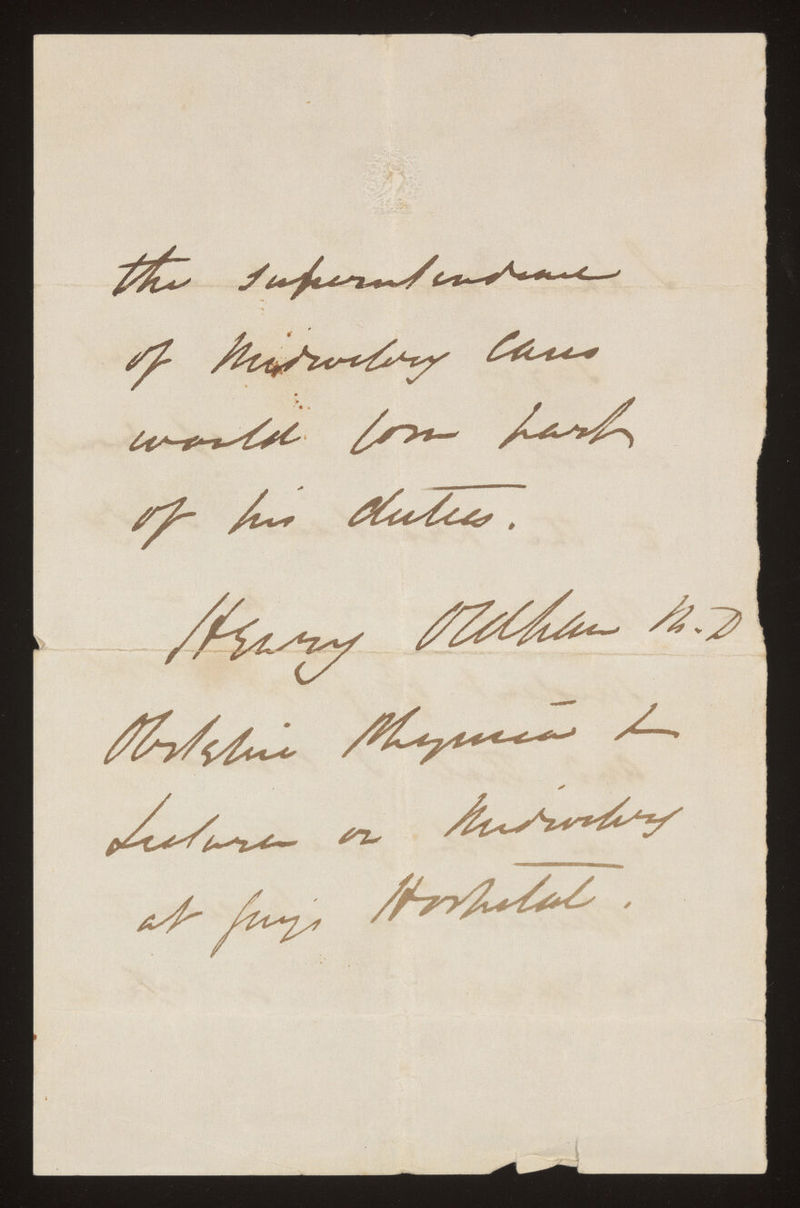 the superintendence
of Midwifery Cases
would form part
of his duties.
Henry Oldham M.D
Obstetric Physician &
Lecturer on Midwifery
at Guy's Hospital.